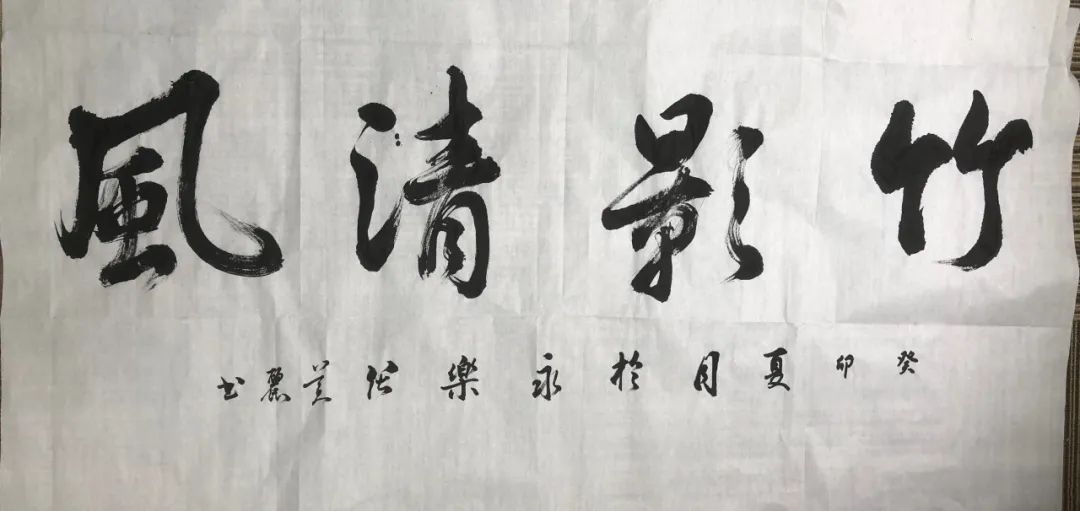 竹影清風
癸卯夏月於永樂伏蘭麗书